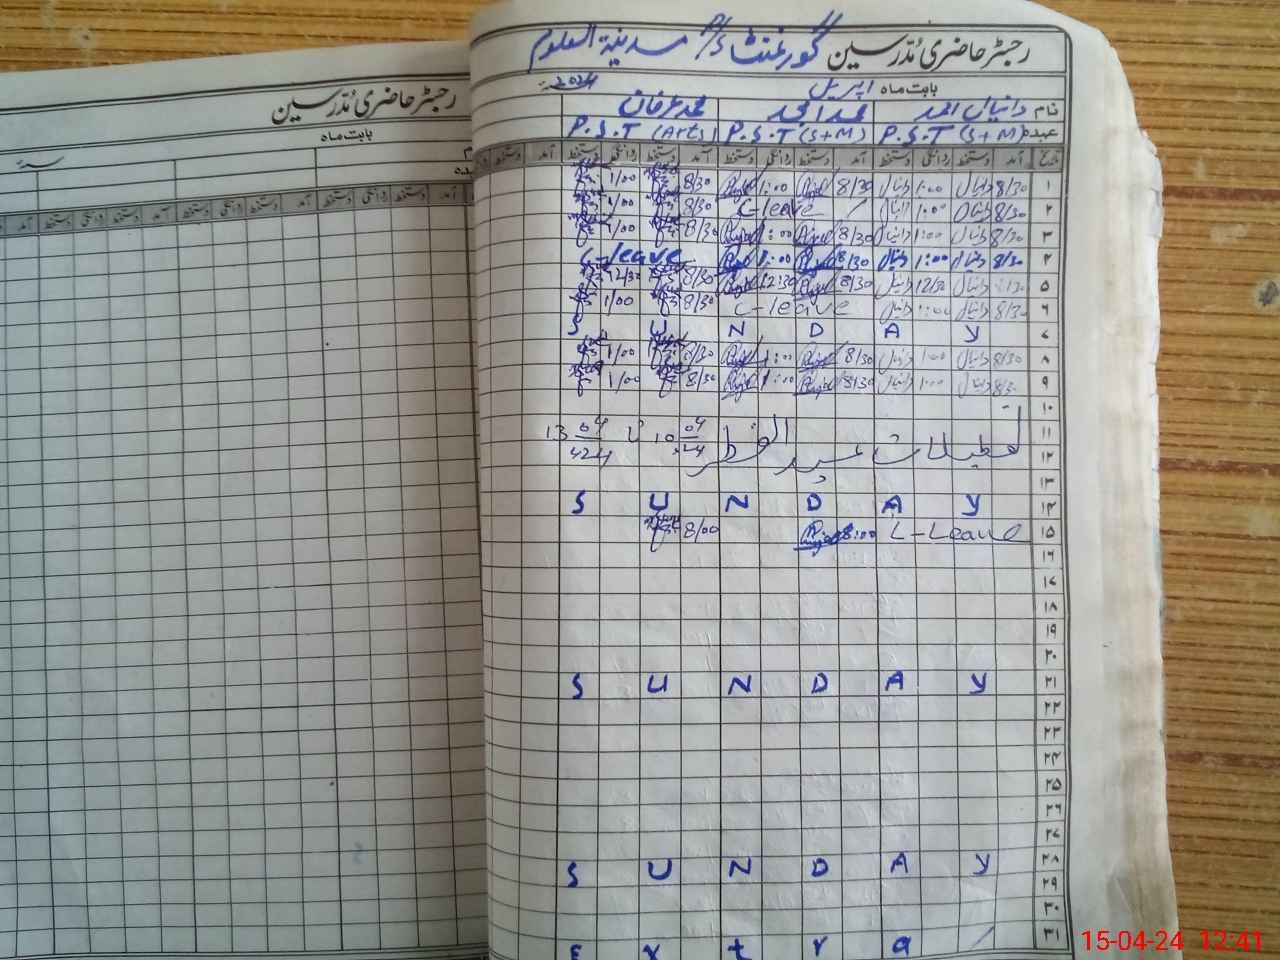 رجسٹر حاضری مدرسین گورنمنٹ P/S مدینۃ العلوم
بابت ماہ اپریل 2024
نام دانیال احمد محمد امجد محمد عرفان
عہدہ P.S.T (S+M) P.S.T (S+M) P.S.T (Arts)
تاریخ آمد دستخط روانگی دستخط آمد دستخط روانگی دستخط آمد دستخط روانگی دستخط آمد دستخط
۱ 8/30 دانیال 1:00 دانیال 8/30 1:00 8/30 1/00
۲ 8/30 دانیال 1:00 دانیال C-leave 8/30 1/00
۳ 8/30 دانیال 1:00 دانیال 8/30 1:00 8/30 1/00
۴ 8/30 دانیال 1:00 دانیال 8/30 1:00 C-leave
۵ 8/30 دانیال 12/30 دانیال 8/30 12:30 8/30 12/30
۶ 8/30 دانیال 1:00 دانیال C-leave 8/30 1/00
۷ S U N D A Y
۸ 8/30 دانیال 1:00 دانیال 8/30 1:00 8/30 1/00
۹ 8/30 دانیال 1:00 دانیال 8/30 1:00 8/30 1/00
۱۰
۱۱ تعطیلات عید الفطر 10 04 تا 13 04
۱۲
۱۳
۱۴ S U N D A Y
۱۵ L-Leave 8:00 8/00
۱۶
۱۷
۱۸
۱۹
۲۰
۲۱ S U N D A Y
۲۲
۲۳
۲۴
۲۵
۲۶
۲۷
۲۸ S U N D A Y
۲۹
۳۰
۳۱ E x t r a
رجسٹر حاضری مدرسین
بابت ماہ
آمد دستخط روانگی دستخط آمد دستخط روانگی دستخط آمد دستخط روانگی دستخط
15-04-24 12:41